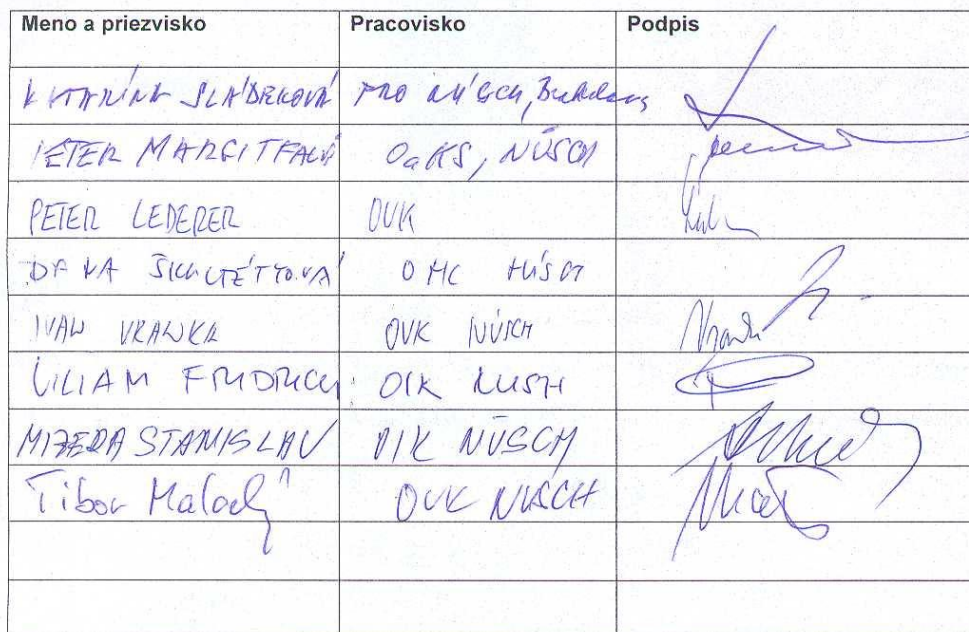 Meno a priezvisko Pracovisko Podpis
KATARÍNA SLÁDEKOVÁ PRO NÚSCH,
PETER MARGITFALVI OaKS, NÚSCH
PETER LEDERER OVK
DANA OMC NÚSCH
IVAN VRANKA OVK NÚSCH
VILIAM FRIDRICH OIK NUSH
MIZERA STANISLAV OIK NÚSCH
Tibor Malacký OVK NUSCH